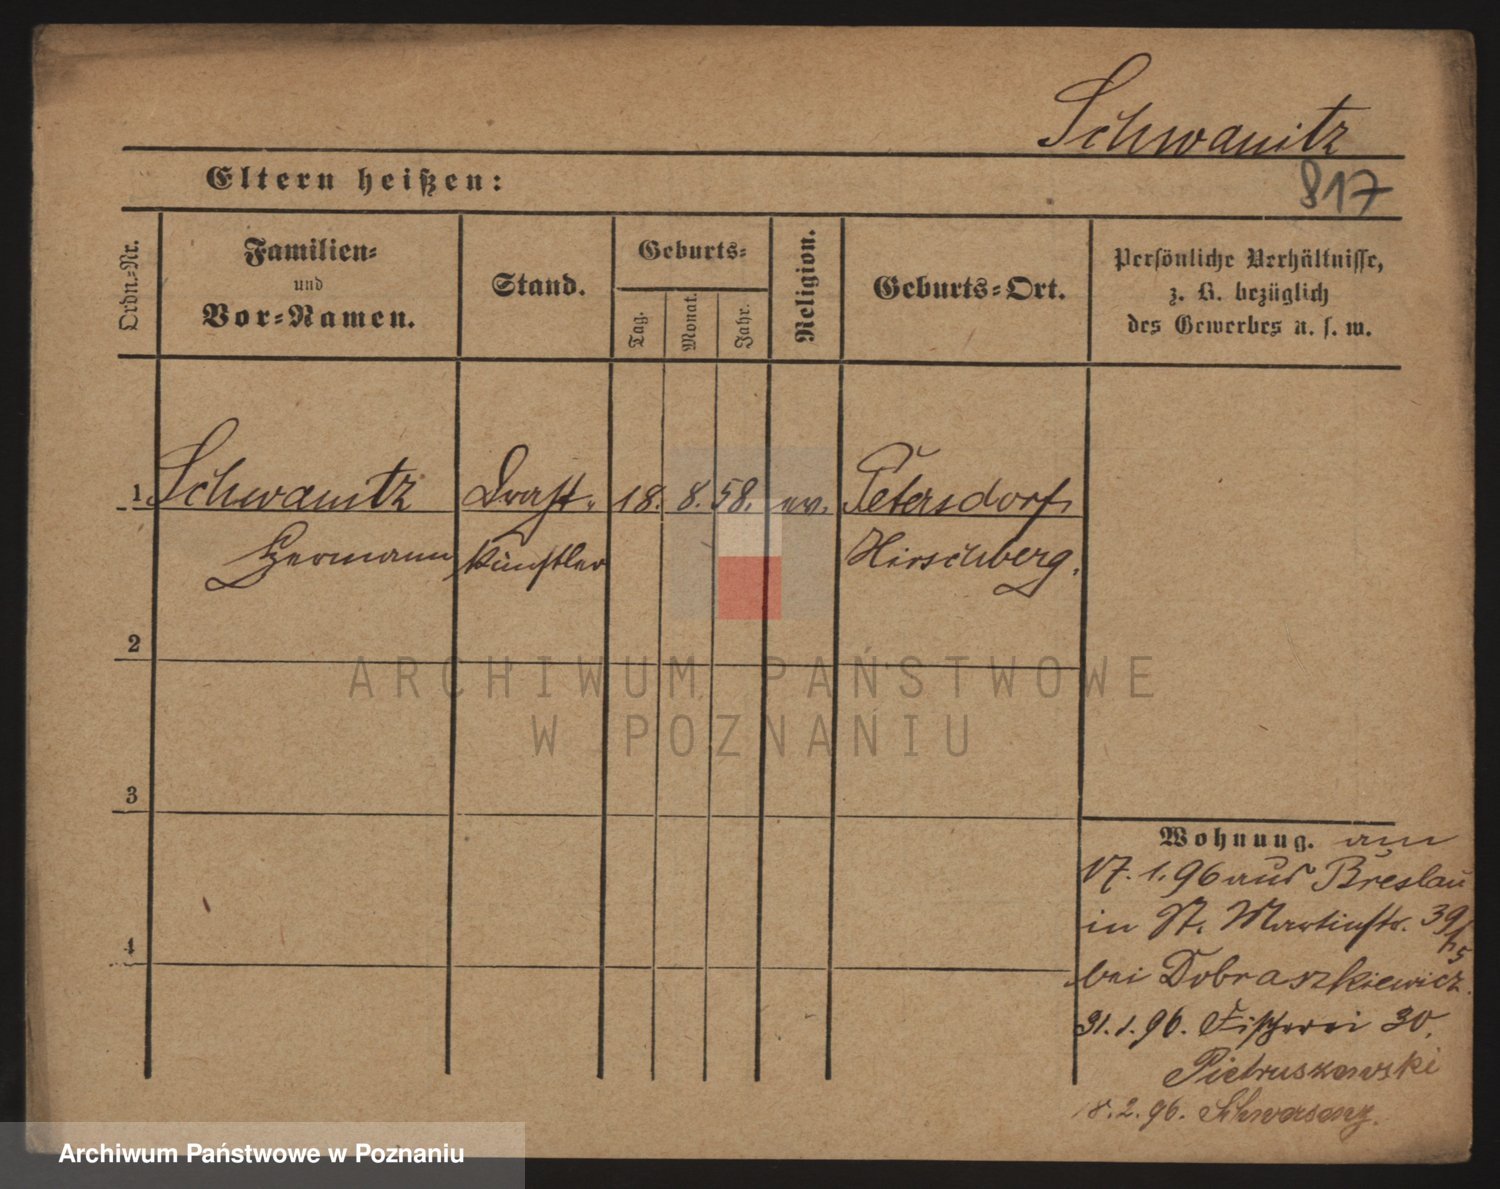 Schwanitz
817
Eltern heißen:
Ordn.=Nr.
Familien=
und
Vor=Namen.
Stand.
Geburts=
Tag.
Monat.
Jahr.
Religion.
Geburts=Ort.
Persönliche Verhältnisse,
z. B. bezüglich
des Gewerbes u. s. w.
1 Schwanitz Draht- 18. 8. 58. ev. Petersdorf
Hermann künstler Hirschberg.
2
3
4
ARCHIWUM PAŃSTWOWE
W POZNANIU
Wohnung. am
17. 1. 96 aus Breslau
in St. Martinstr. 39
bei Dobraszkiewicz.
31. 1. 96. Fischerei 30.
Pietruszewski
18. 2. 96. Schwersenz.
Archiwum Państwowe w Poznaniu